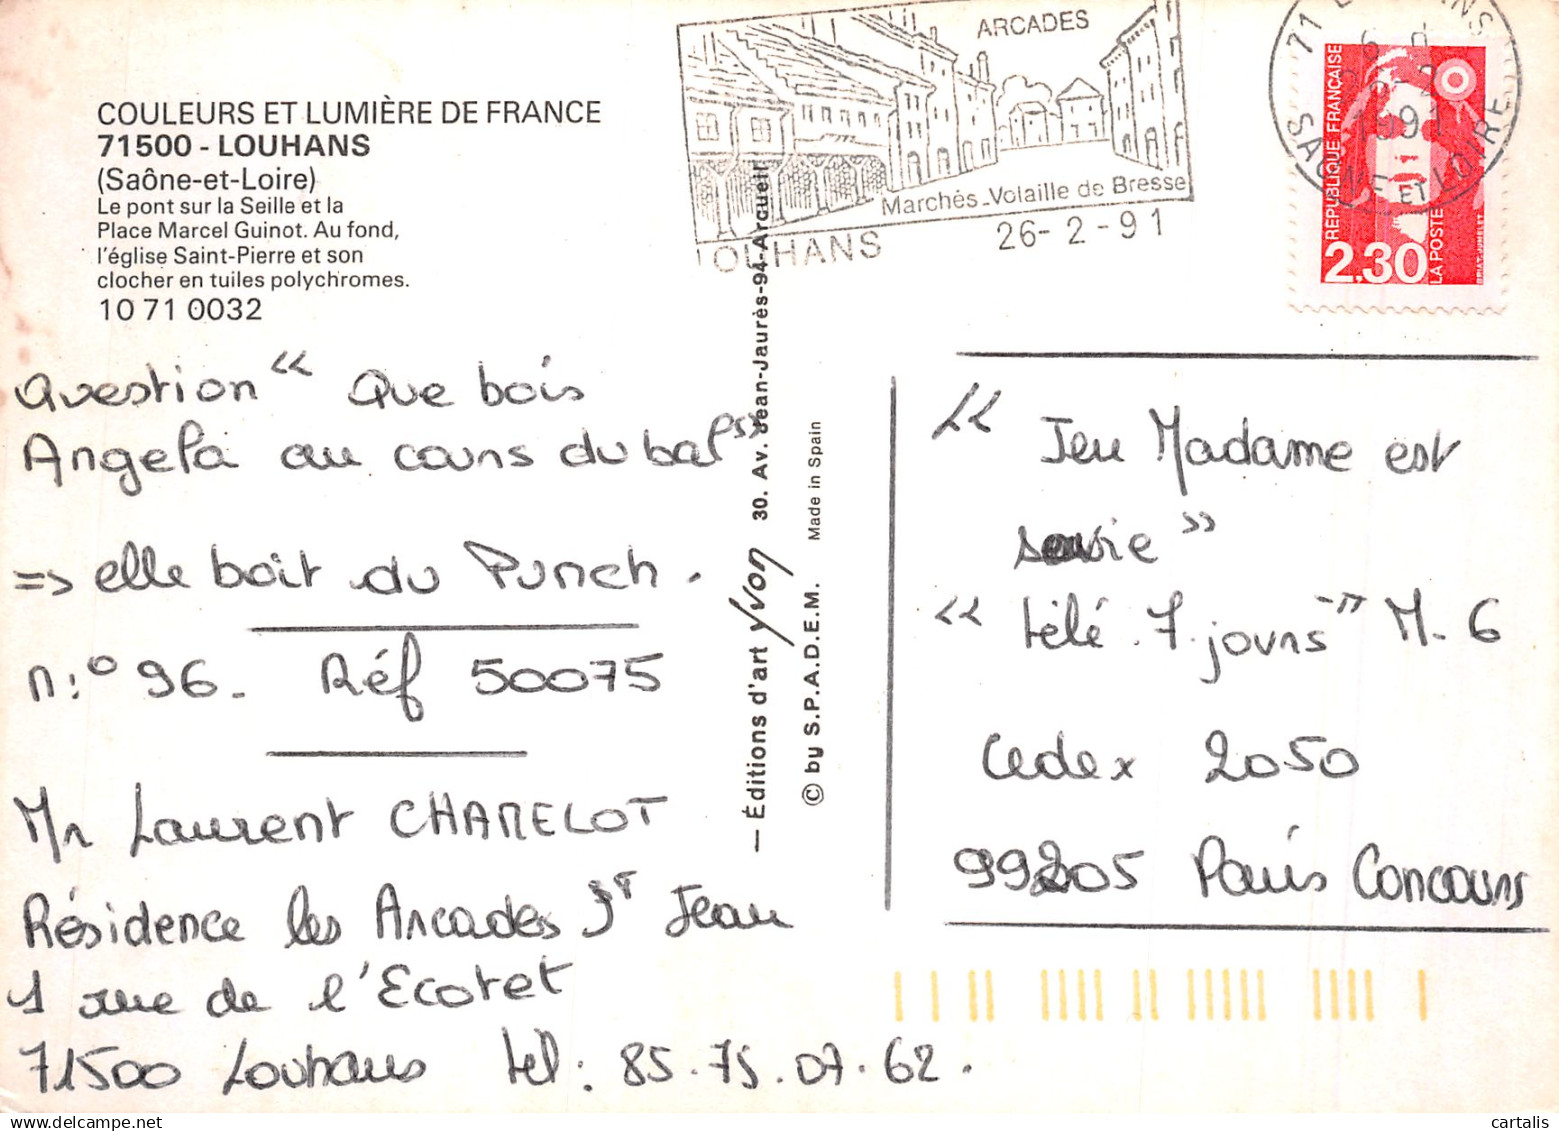 COULEURS ET LUMIÈRE DE FRANCE
71500 - LOUHANS
(Saône-et-Loire)
Le pont sur la Seille et la
Place Marcel Guinot. Au fond,
l'église Saint-Pierre et son
clocher en tuiles polychromes.
10 71 0032
ARCADES
Marchés_Volaille de Bresse
LOUHANS
26-2-91
SAONE ET LOIRE
RÉPUBLIQUE FRANÇAISE
2,30
LA POSTE
Question " Que bois
Angela au cours du bal "
=> elle boit du Punch.
n:° 96. Réf 50075
Mr Laurent CHAMELOT
Résidence les Arcades St Jean
1 rue de l'Ecotet
71500 Louhans tel: 85.75.07.62.
— Éditions d'art Yvon 30. Av. Jean-Jaurès-94-Arcueil
© by S.P.A.D.E.M. Made in Spain
" Jeu Madame est
servie "
" télé 7 jours " M-6
Cedex 2050
99205 Paris Concours
cartalis